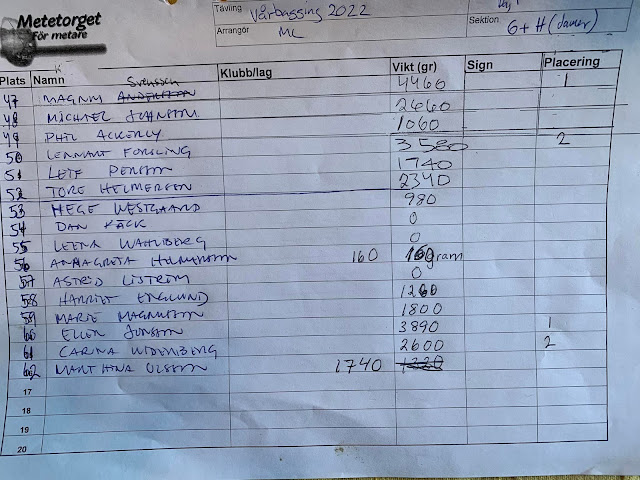 Metetorget
För metare
Tävling Vårbagging 2022
Arrangör MC
Sektion G+H (damer)
Plats Namn Klubb/lag Vikt (gr) Sign Placering
47 MAGNUS ANDERSSON Svensson 4460 1
48 MICHAEL JOHNSSON 2660
49 PHIL ACKERLY 1060
50 LENNART FORSLING 3580 2
51 LEIF PERSSON 1740
52 TORE HELMERSEN 2340
53 HEGE WESTGAARD 980
54 DAN KÄCK 0
55 LEENA WAHLBERG 0
56 ANNAGRETA 160 160gram
57 ASTRID 0
58 HARRIET ENGLUND 1260
59 MARIE MAGNUSSON 1800
60 ELLEN JONSSON 3890 1
61 CARINA 2600 2
62 MARTHINA OLSSON 1740 1320
17
18
19
20